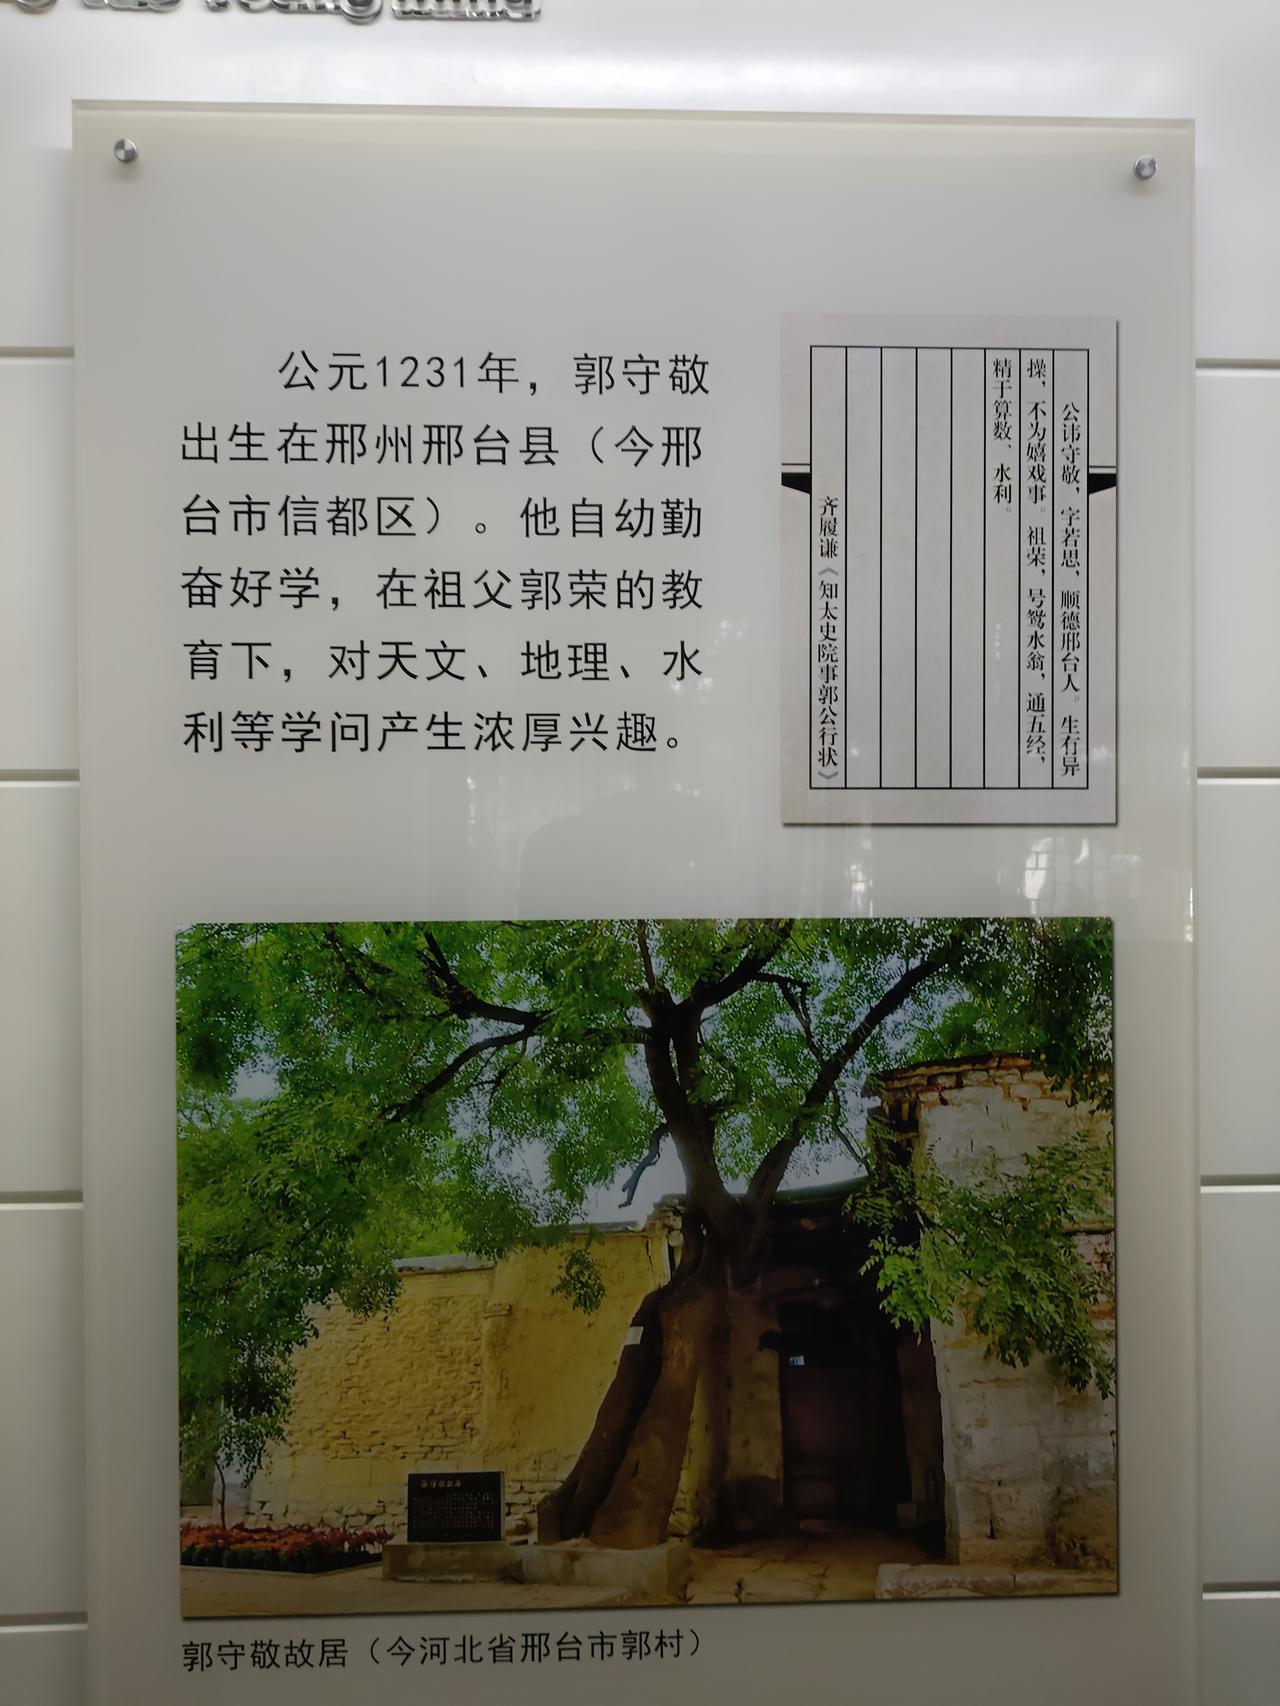 公元1231年，郭守敬
出生在邢州邢台县（今邢
台市信都区）。他自幼勤
奋好学，在祖父郭荣的教
育下，对天文、地理、水
利等学问产生浓厚兴趣。
公讳守敬，字若思，顺德邢台人。生有异
操，不为嬉戏事。祖荣，号鸳水翁，通五经，
精于算数、水利。
齐履谦《知太史院事郭公行状》
郭守敬故居
郭守敬故居（今河北省邢台市郭村）